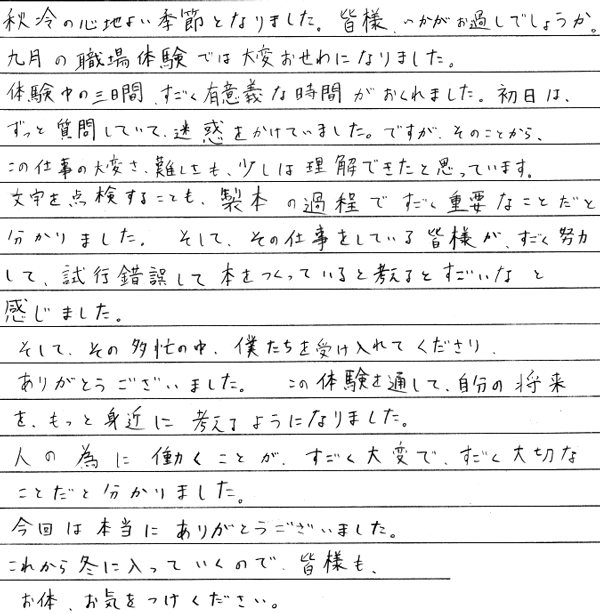 秋冷の心地よい季節となりました。皆様、いかがお過しでしょうか。
九月の職場体験では大変おせわになりました。
体験中の三日間、すごく有意義な時間がおくれました。初日は、
ずっと質問していて、迷惑をかけていました。ですが、そのことから、
この仕事の大変さ、難しさも、少しは理解できたと思っています。
文字を点検することも、製本の過程ですごく重要なことだと
分かりました。そして、その仕事をしている皆様が、すごく努力
して、試行錯誤して本をつくっていると考えるとすごいなと
感じました。
そして、その多忙の中、僕たちを受け入れてくださり、
ありがとうございました。この体験を通して、自分の将来
を、もっと身近に考えるようになりました。
人の為に働くことが、すごく大変で、すごく大切な
ことだと分かりました。
今回は本当にありがとうございました。
これから冬に入っていくので、皆様も、
お体、お気をつけください。